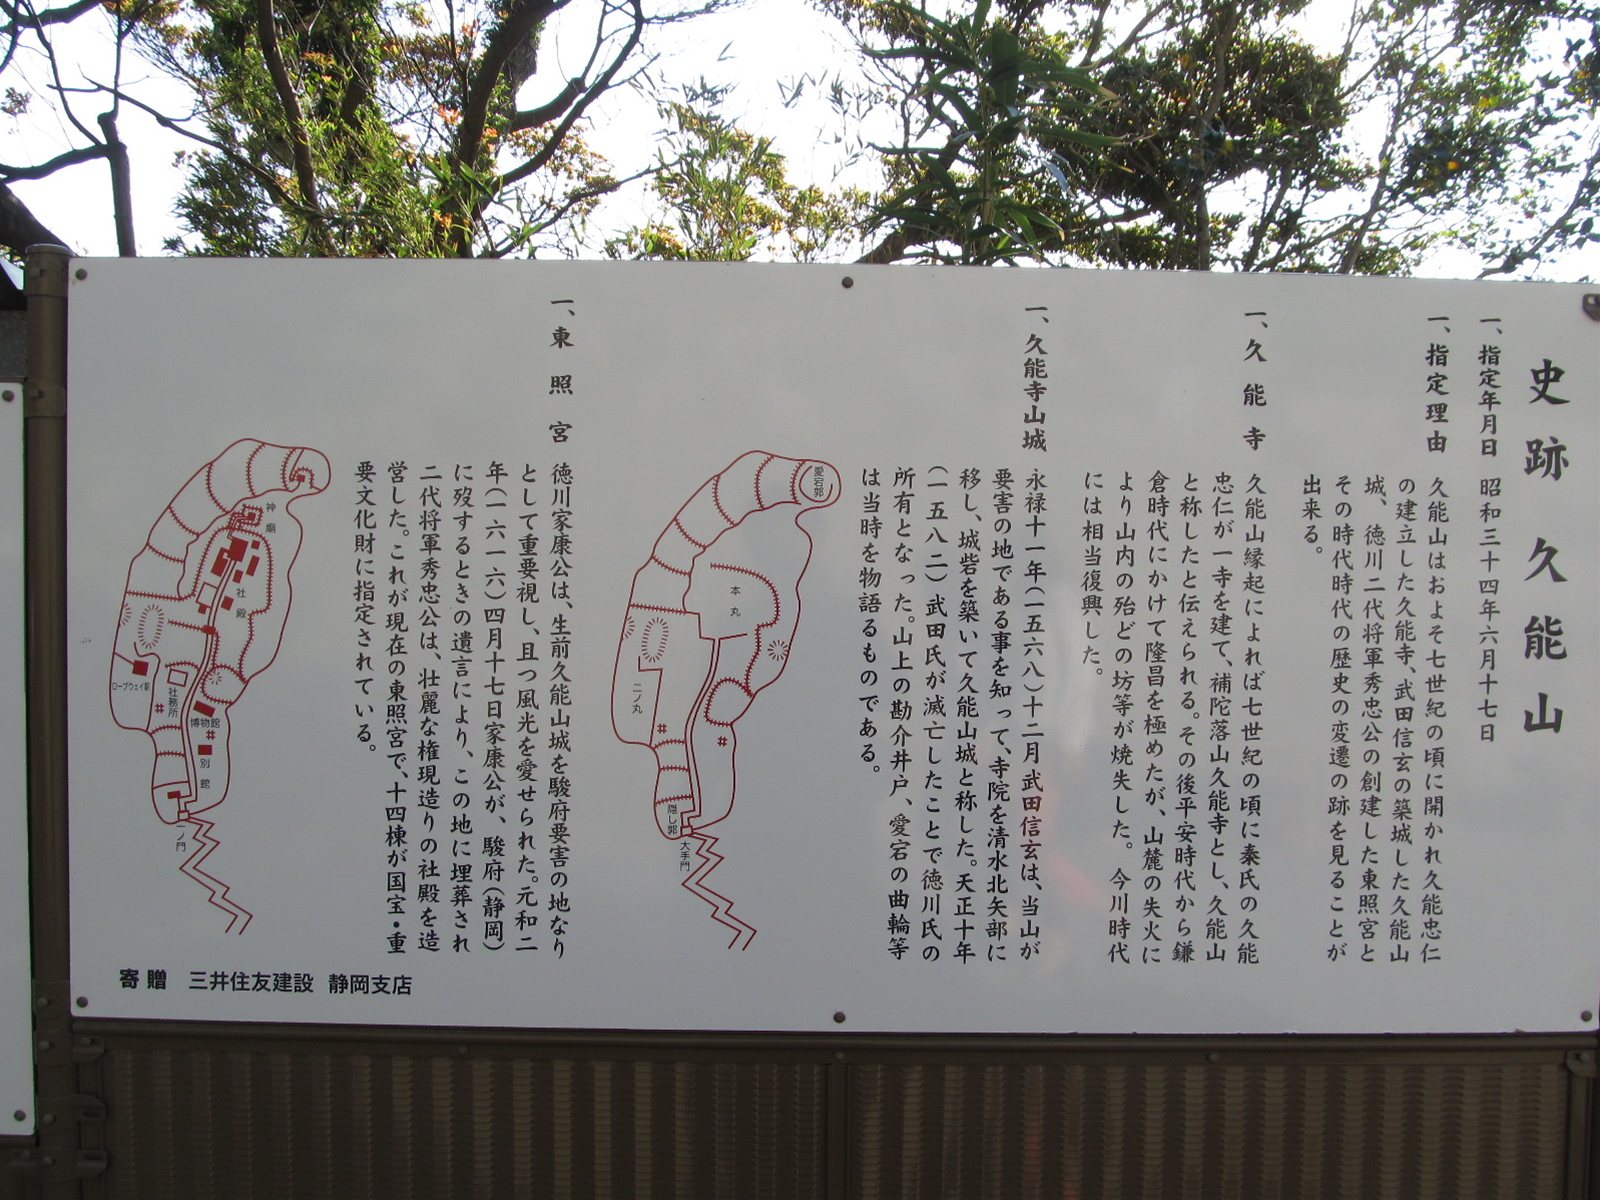 史跡 久能山
一、指定年月日 昭和三十四年六月十七日
一、指定理由 久能山はおよそ七世紀の頃に開かれ久能忠仁
の建立した久能寺、武田信玄の築城した久能山
城、徳川二代将軍秀忠公の創建した東照宮と
その時代時代の歴史の変遷の跡を見ることが
出来る。
一、久能寺 久能山縁起によれば七世紀の頃に秦氏の久能
忠仁が一寺を建て、補陀落山久能寺とし、久能山
と称したと伝えられる。その後平安時代から鎌
倉時代にかけて隆昌を極めたが、山麓の失火に
より山内の殆どの坊等が焼失した。今川時代
には相当復興した。
一、久能寺山城 永禄十一年(一五六八)十二月武田信玄は、当山が
要害の地である事を知って、寺院を清水北矢部に
移し、城砦を築いて久能山城と称した。天正十年
(一五八二)武田氏が滅亡したことで徳川氏の
所有となった。山上の勘介井戸、愛宕の曲輪等
は当時を物語るものである。
愛宕郭
本丸
二ノ丸
隠し郭
大手門
一、東照宮 徳川家康公は、生前久能山城を駿府要害の地なり
として重要視し、且つ風光を愛せられた。元和二
年(一六一六)四月十七日家康公が、駿府(静岡)
に歿するときの遺言により、この地に埋葬され
二代将軍秀忠公は、壮麗な権現造りの社殿を造
営した。これが現在の東照宮で、十四棟が国宝・重
要文化財に指定されている。
神廟
社殿
ロープウェイ駅
社務所
博物館
別館
一ノ門
寄贈 三井住友建設 静岡支店